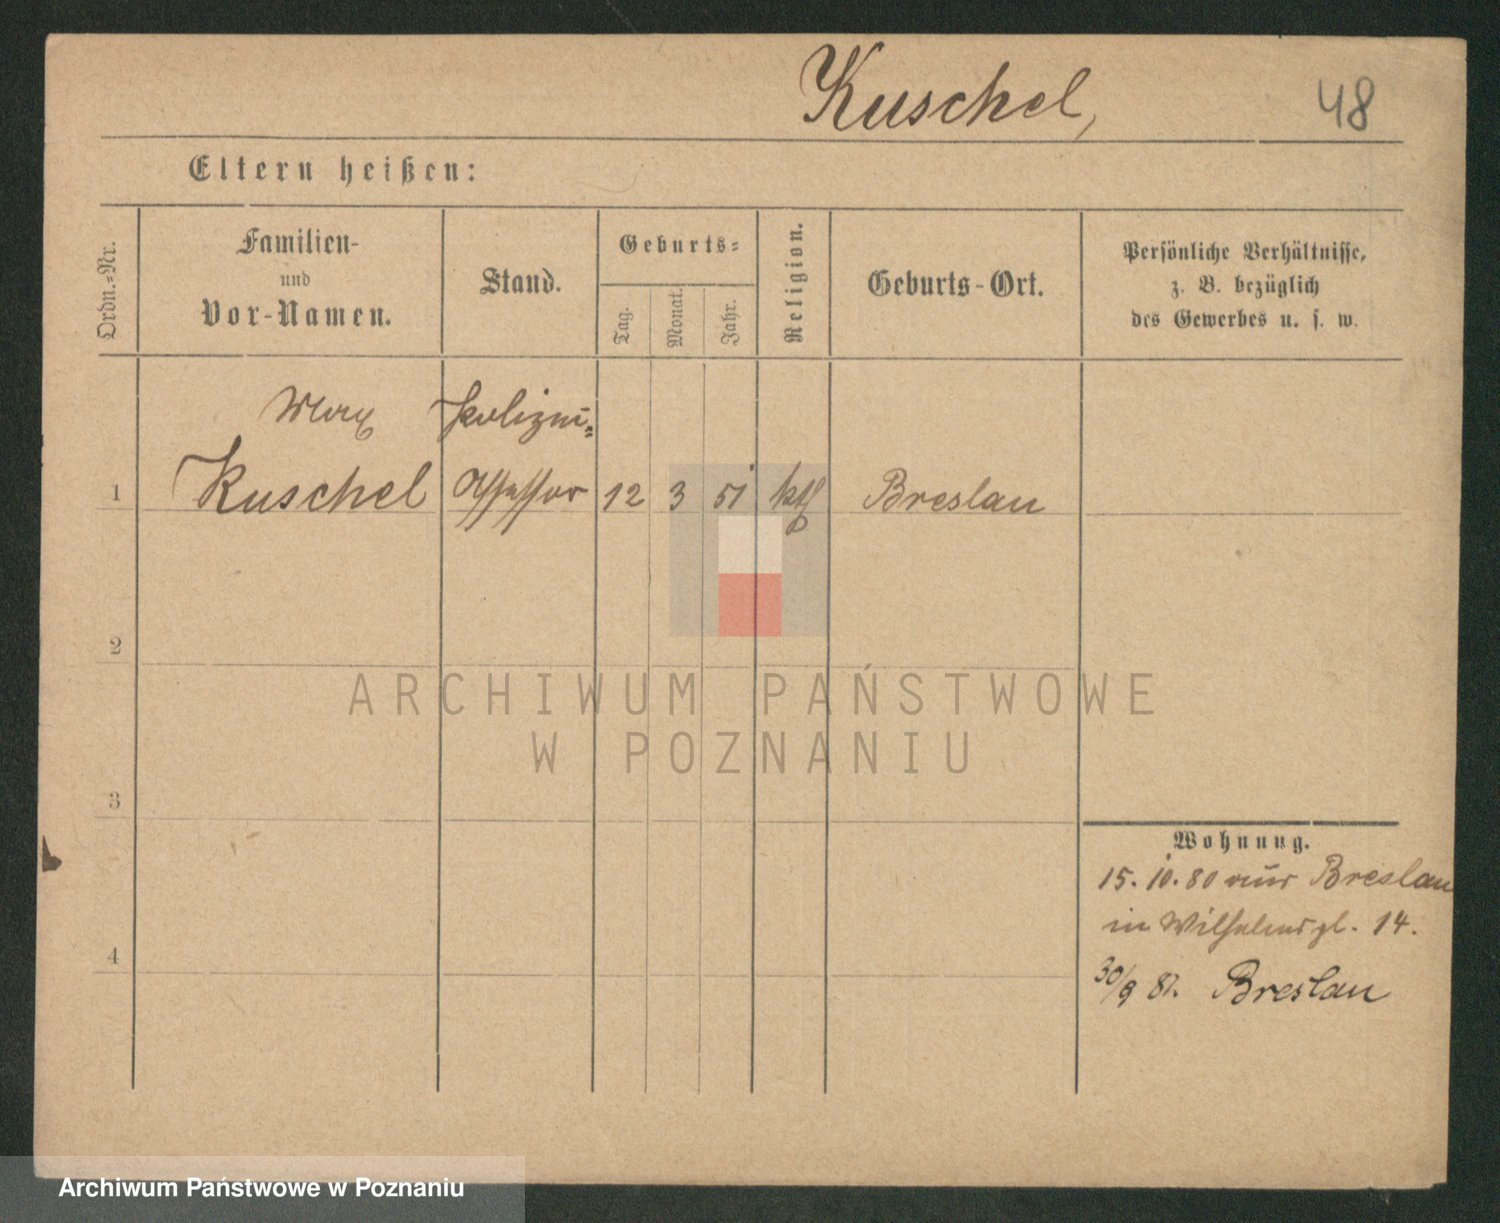 Kuschel,
48
Eltern heißen:
Ordn.-Nr.
Familien-
und
Vor-Namen.
Stand.
Geburts-
Tag.
Monat.
Jahr.
Religion.
Geburts-Ort.
Persönliche Verhältnisse,
z. B. bezüglich
des Gewerbes u. s. w.
Max
Polizei-
1 Kuschel Assessor 12 3 51 kth Breslau
2
ARCHIWUM PAŃSTWOWE
W POZNANIU
3
Wohnung.
15. 10. 80 aus Breslau
in Wilhelmspl. 14.
4
30/9 81. Breslau
Archiwum Państwowe w Poznaniu